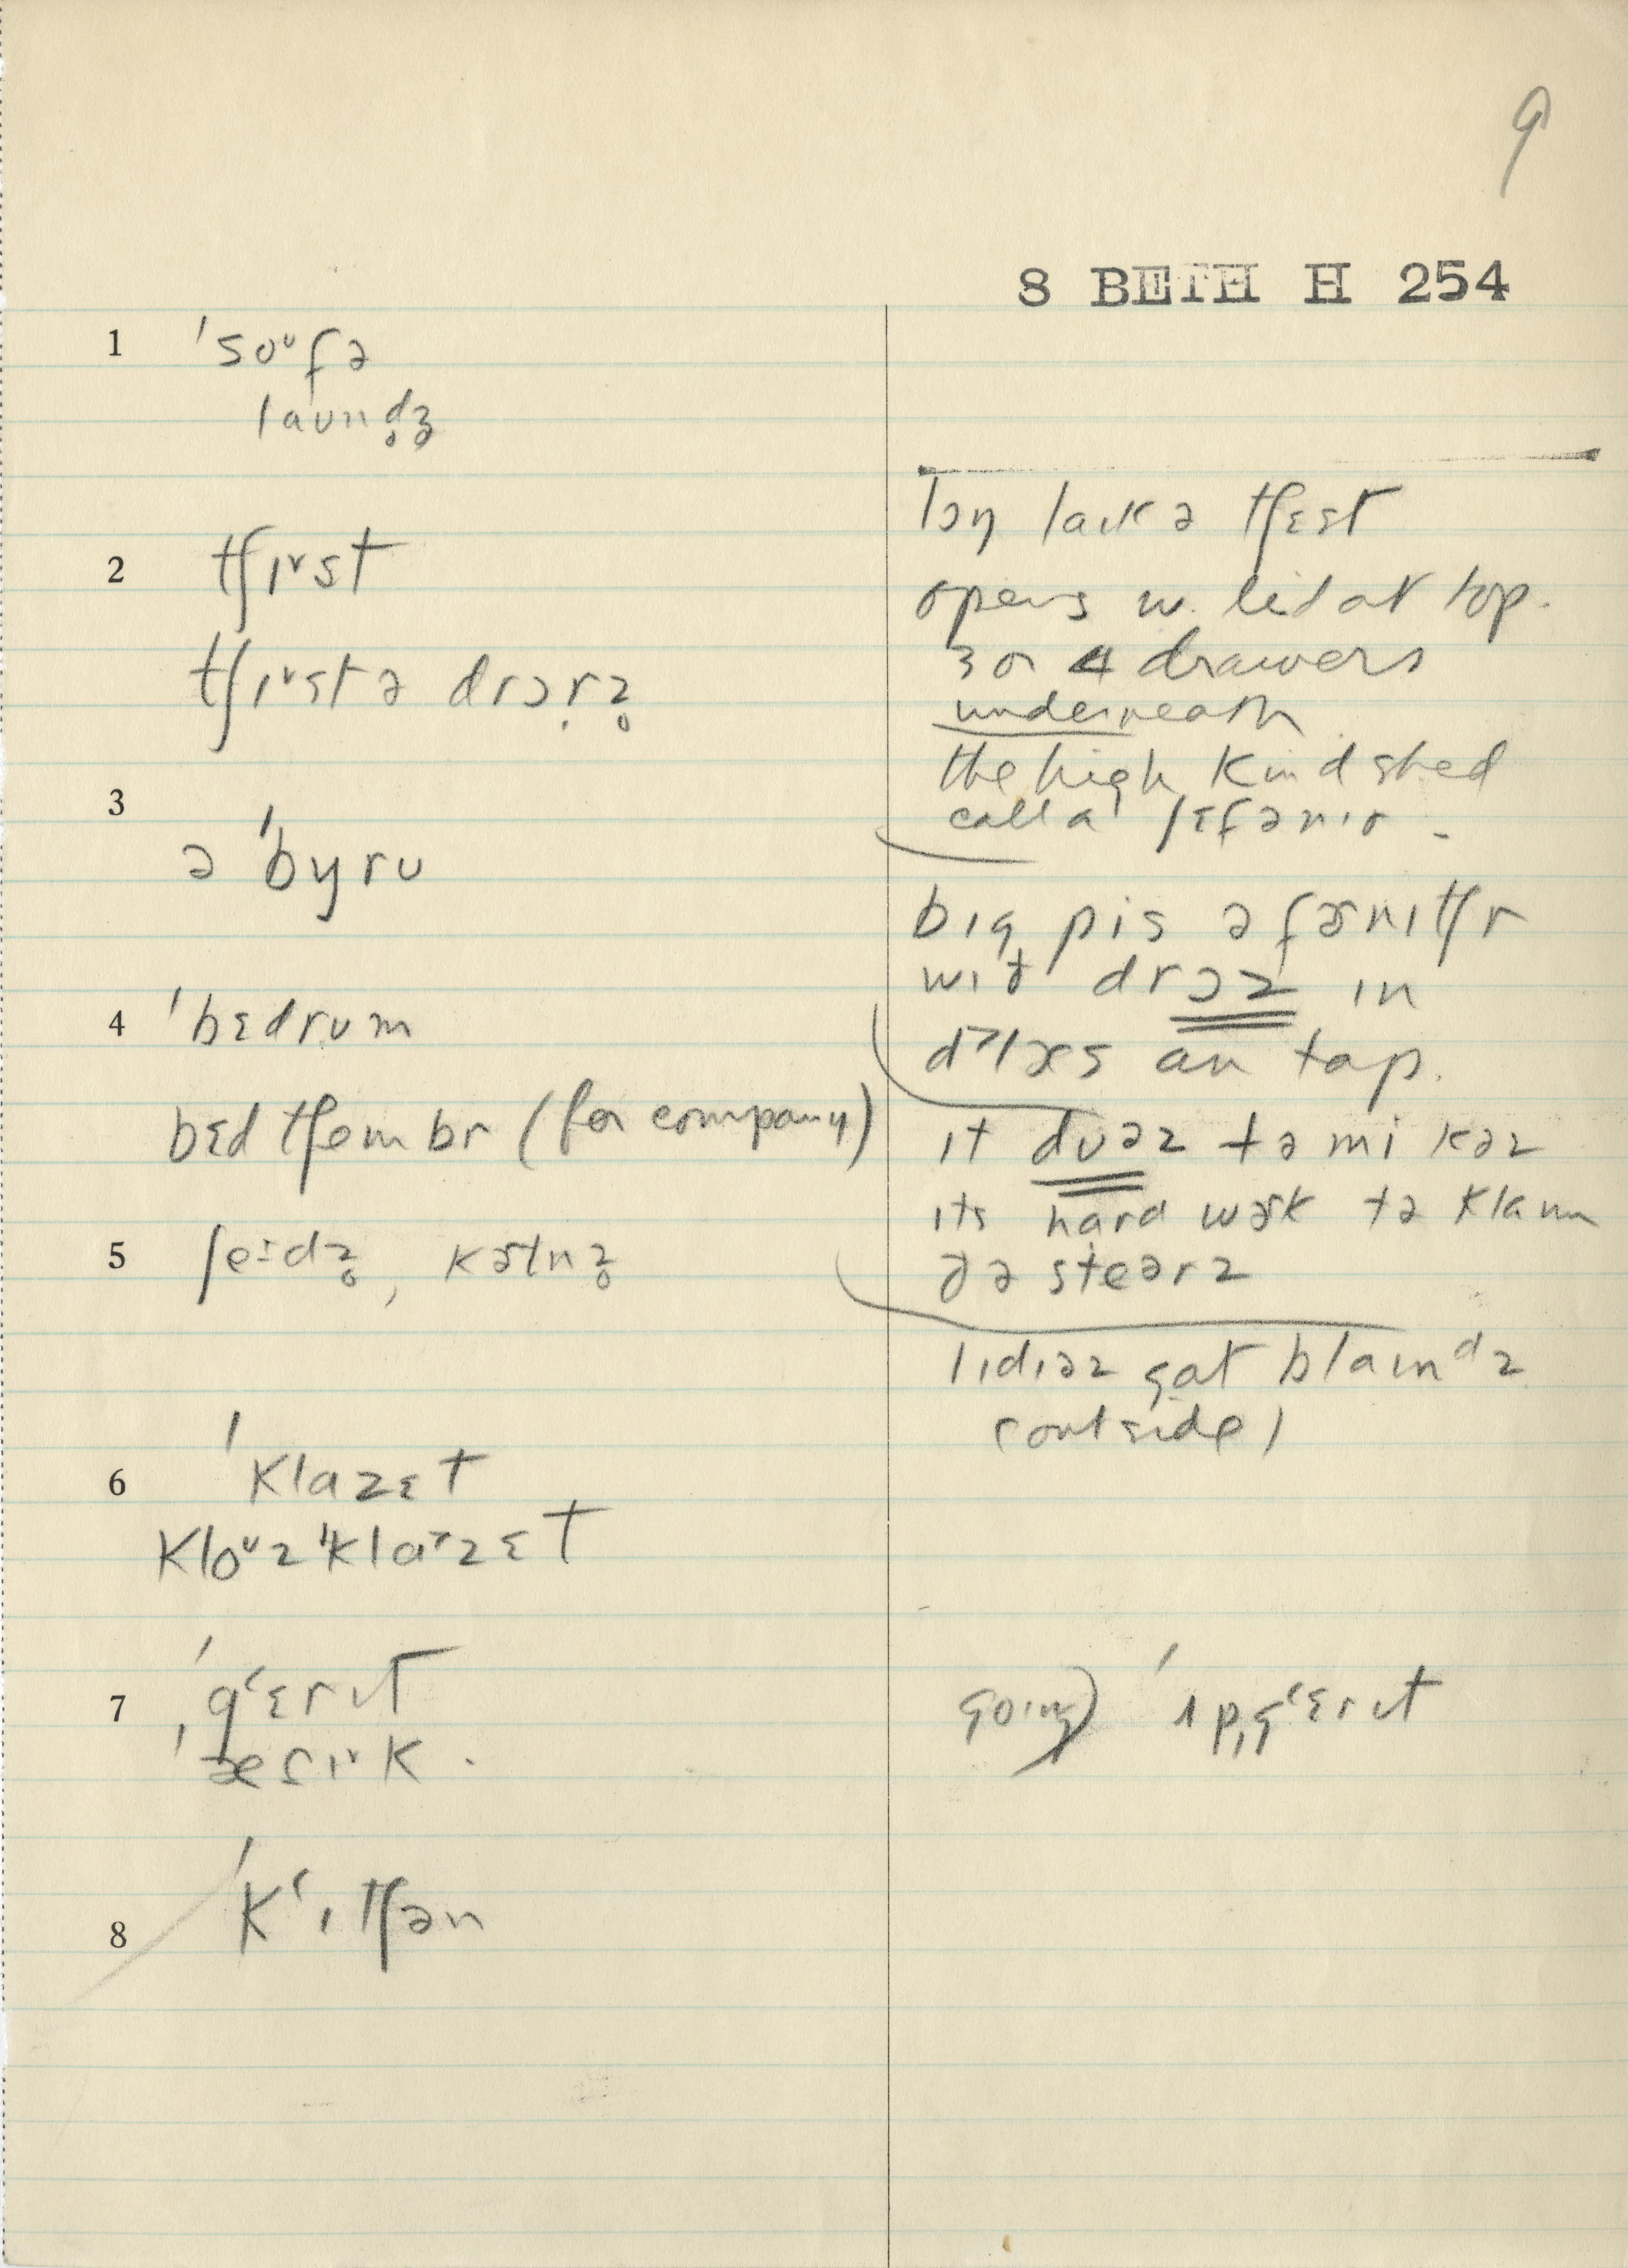 9
8 BETH H 254
1 ˈsoᶷfə
laund̥ʒ̥
2 tʃɪᵛst
tʃɪᵛstə drɔr̩z̥
3 ə ˈbyru
4 ˈbɛdrum
bɛd tʃɐmbr (for company)
5 ʃe·dz̥, kɚtnz̥
6 ˈklazɛt
kloᶷzˈklaᵛzɛt
7 ˈgʻɛrɪt
ˈæsɪᵛk.
8 ˈkʻɪtʃən
lɔŋ laɪk ə tʃɛst
opens w. lid at top.
3 or 4 drawers
underneath
the high kind shed
call a ʃɛfənɪr.
bɪg pis ə fɚnɪtʃr
wɪð drɔz in
an tap.
ɪt duəz tə mi kəz
ɪts hard wɚk tə klaɪm
ðə steərz
lɪdɪəz gat blaɪnᵈz
(outside)
going) ˈʌpˌgʻɛrɪt